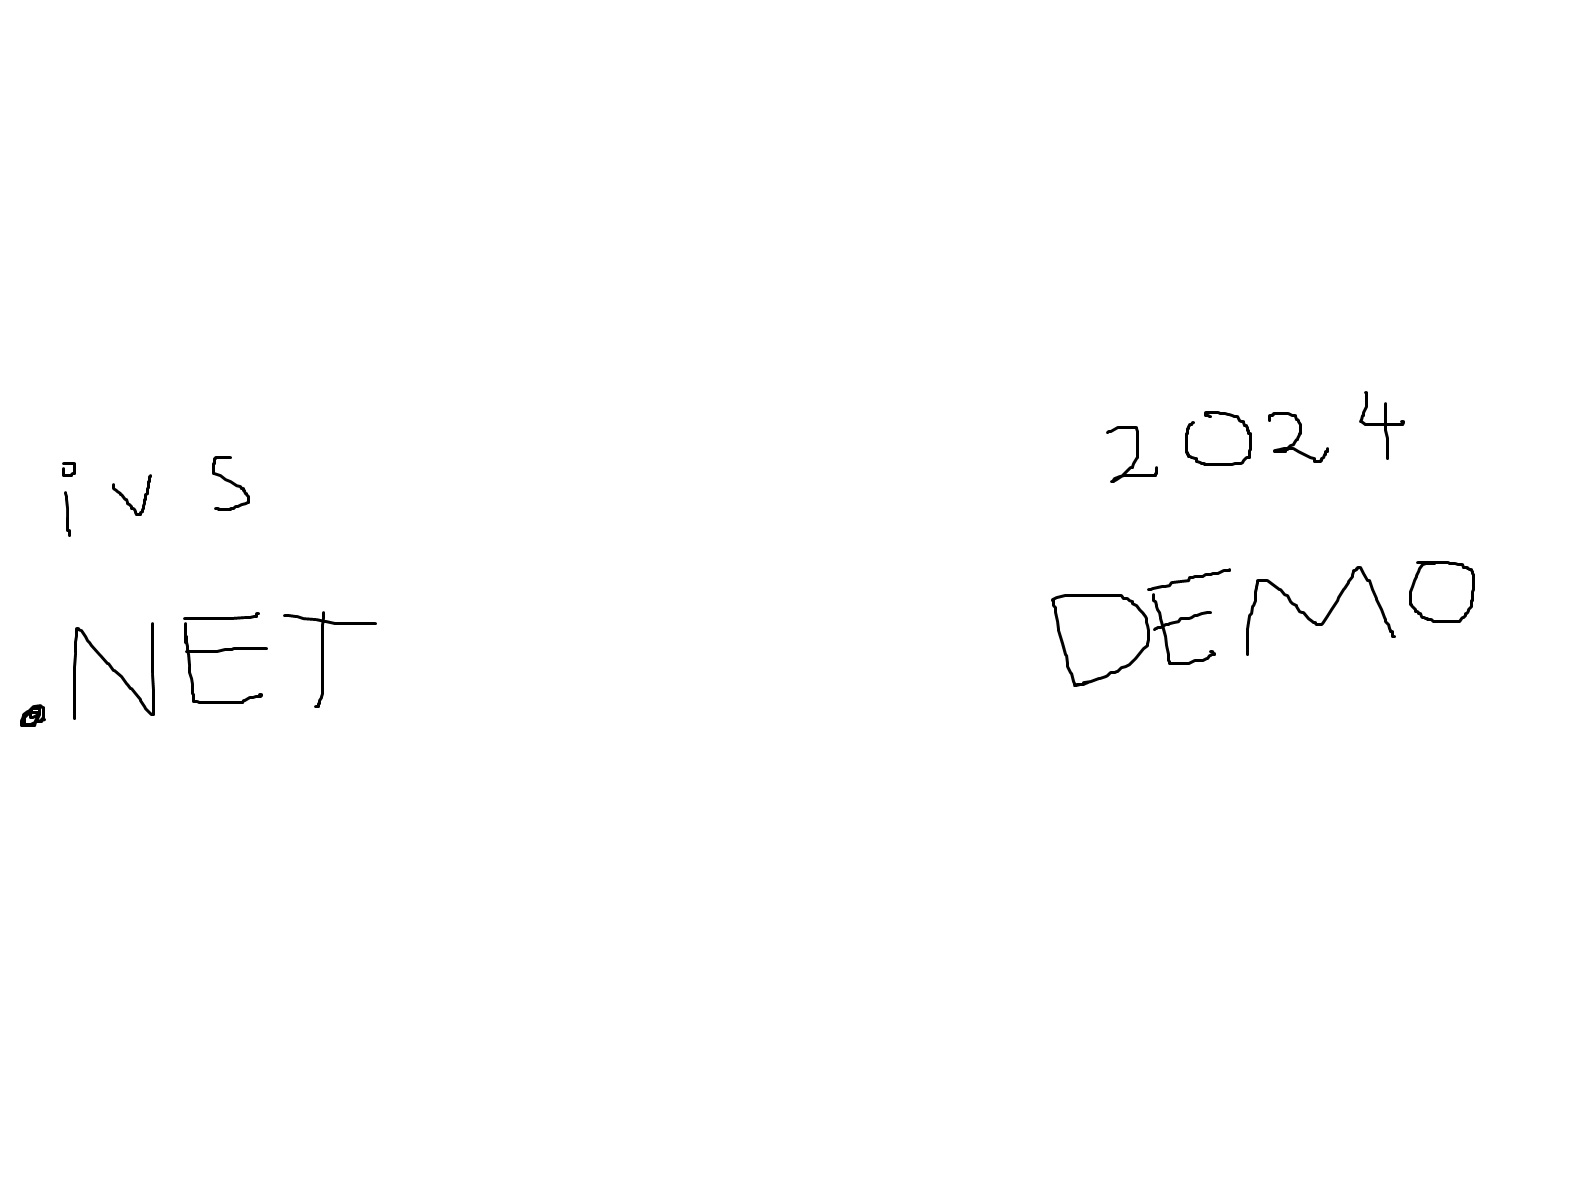 ivs
.NET
2024
DEMO